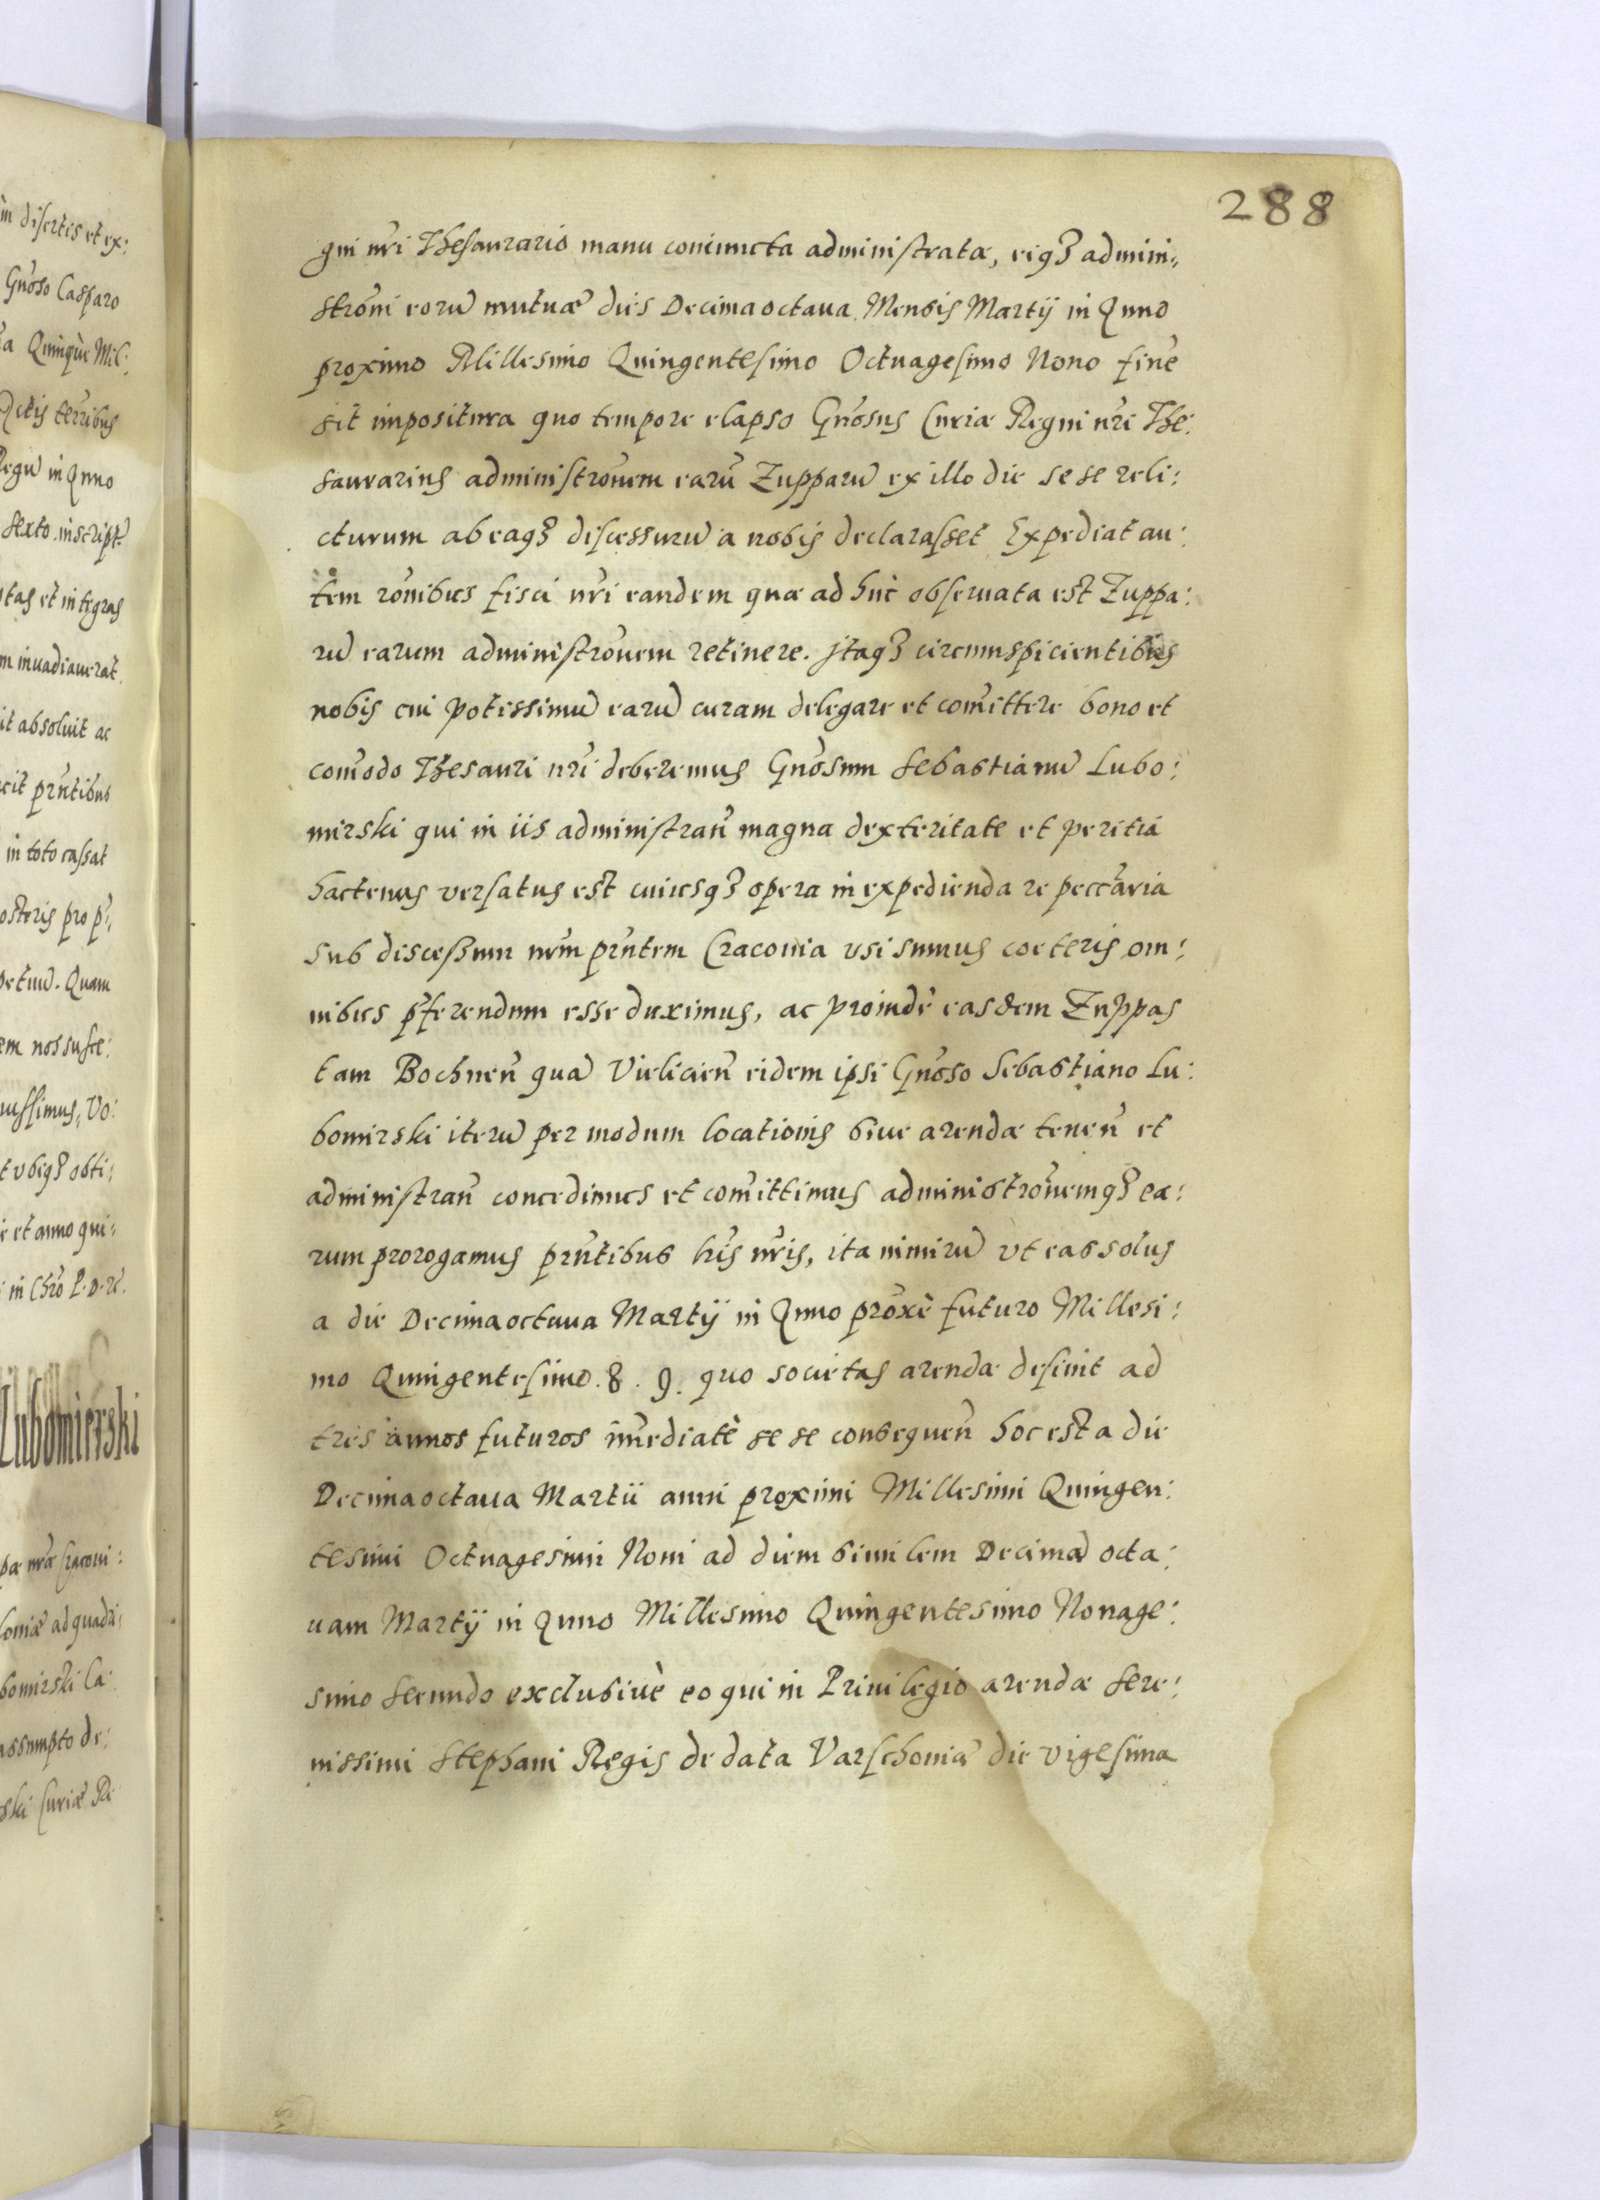 288
gni nr̃i Thesaurario manu coniuncta administratæ, eiq3 admini„
stro͂ni eoru̅ mutuæ dies Decimaoctaua Mensis Martÿ in Anno
proximo Millesimo Quingentesimo Octuagesimo Nono fine̅
sit impositura quo tempore elapso Gn̅osus Curiæ Regni nr̃i The:
saurarius administro͂nem earu̅ Zupparu̅ ex illo die se se reli:
cturum ab eaq3 discessuru̅ a nobis declarasset Expediat au:
tem ro͂nibus fisci nr̃i eandem quæ ad huc obseruata est Zuppa:
ru̅ earum administro͂nem retinere. Itaq3 circumspicientibus
nobis cui potissimu̅ earu̅ curam delegare et com̅ittere bono et
com̅odo Thesauri nr̃i deberemus Gn̅osum Sebastianu̅ Lubo:
mirski qui in iis administran̅ magna dexteritate et peritia
hactenus versatus est cuiusq3 opera in expedienda re pecc̅aria
sub discessum nr̃m prn̅tem Cracouia vsi sumus coeteris om:
nibus p̅ferendum esse duximus, ac proinde easdem Zuppas
tam Bochnen̅ qua̅ Vielicien̅ eidem ipsi Gn̅oso Sebastiano Lu:
bomirski iteru̅ per modum locationis siue arendæ tenen̅ et
administran̅ concedimus et com̅ittimus administro͂nemq3 ea:
rum prorogamus prn̅tibus hr̃is nr̃is, ita nimiru̅ vt eas solus
a die Decimaoctaua Martÿ in Anno prox̅e̅ futuro Millesi:
mo Quingentesimo. 8. 9. quo societas arendæ desinit ad
tres annos futuros im̅ediatè se se consequen̅ hoc est a die
Decimaoctaua Martii anni proximi Millesimi Quingen:
tesimi Octuagesimi Noni ad diem similem Decima̅ octa:
uam Martÿ in Anno Millesimo Quingentesimo Nonage:
simo secundo exclusiuè eo qui in Priuilegio arendæ Sere:
nissimi Stephani Regis de data Varschouiæ die vigesima
in disertis et ex:
Gn̅oso Casparo
Quinque Mil:
Actis terribus
Regu̅ in Anno
sexto inscript.
et integras
inuadiauerat
absoluit ac
prn̅tibus
in toto cassat
pro p:,
Quam
nos susce:
Vo:
vbiq3 obti:
et anno qui:
in Chr̃o P. D. D.
Lubomierski
nr̃æ Cracoui:
ad quadri:
bomirski Ca:
assumpto de:
ski Curiæ Re